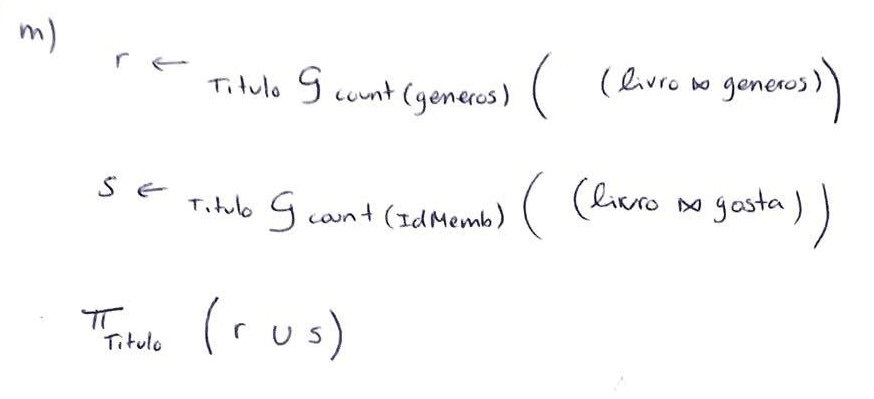 m)
r ← Titulo G count(generos) ( (livro ⋈ generos))
S ← Titulo G count(IdMemb) ( (livro ⋈ gosta))
π Titulo (r ∪ s)